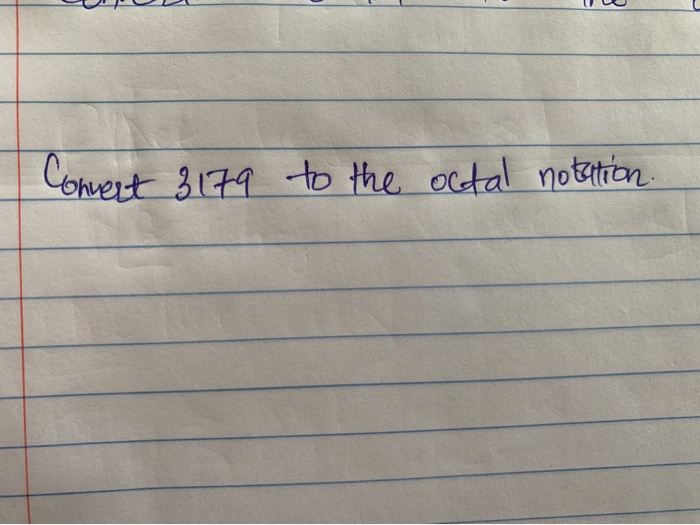 the
Convert 3179 to the octal notation.